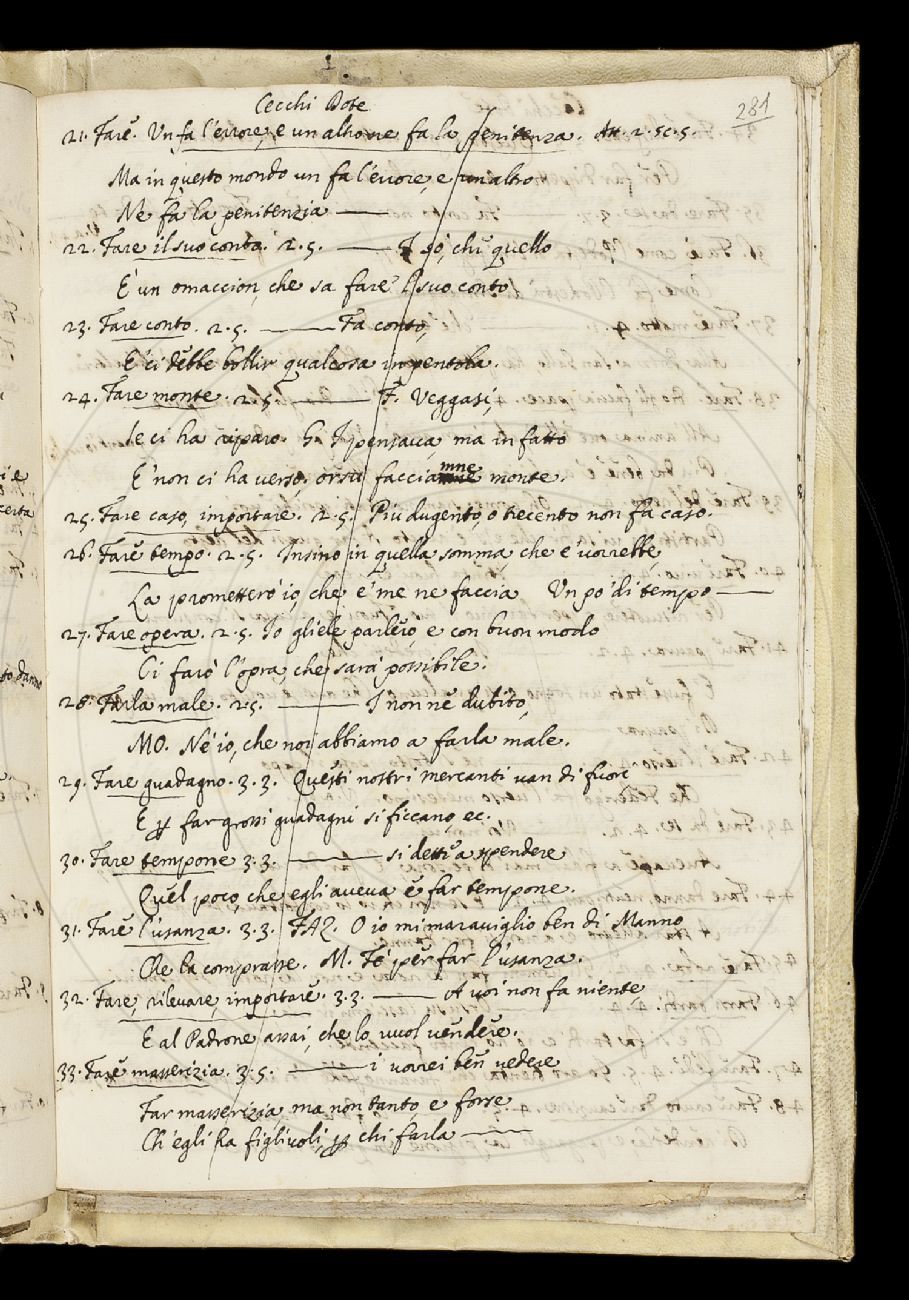 Cecchi Dote
281
21. Fare. Un fa l'errore, e un altro ne fa la penitenza. Att. 2. sc. 5.
Ma in questo mondo un fa l'errore, e un altro
Ne fa la penitenzia
22. Fare il suo conto. 2. 5. I sò, chi quello
E' un omaccion, che sa fare 'l suo conto
23. Fare conto. 2. 5. Fa conto,
E' ci debbe bollir qualcosa in pentola.
24. Fare monte. 2. 5. F. Veggasi,
Se ci ha riparo. G. I pensava, ma in fatto
E' non ci ha verso, orsù facciamne monte.
25. Fare caso, importare. 2. 5. Più dugento, o trecento non fa caso.
26. Fare tempo. 2. 5. Insino in quella somma, che e' vorrebbe,
La prometterò io, che e' me ne faccia Un po' di tempo
27. Fare opera. 2. 5. Io gliele parlerò, e con buon modo
Ci farò l'opra, che sarà possibile.
28. Farla male. 2. 5. I non ne dubito,
MO. Nè io, che noi abbiamo a farla male.
29. Fare guadagno. 3. 3. Questi nostri mercanti van di fuore
E ꝑ far grossi guadagni si ficcano, ec.
30. Fare tempone 3. 3. si dette a spendere
Quel poco, che egli aveva e far tempone.
31. Fare l'usanza. 3. 3. FAZ. O io mi maraviglio ben di Manno
Che la comprasse. M. Fè per far l'usanza.
32. Fare, rilevare, importare. 3. 3. A voi non fa niente,
E al Padrone assai, che lo vuol vendere.
33. Fare masserizia. 3. 5. i vorrei ben vedere
Far masserizia, ma non tanto e forse
Ch'egli ha figlivoli, ꝑ chi farla